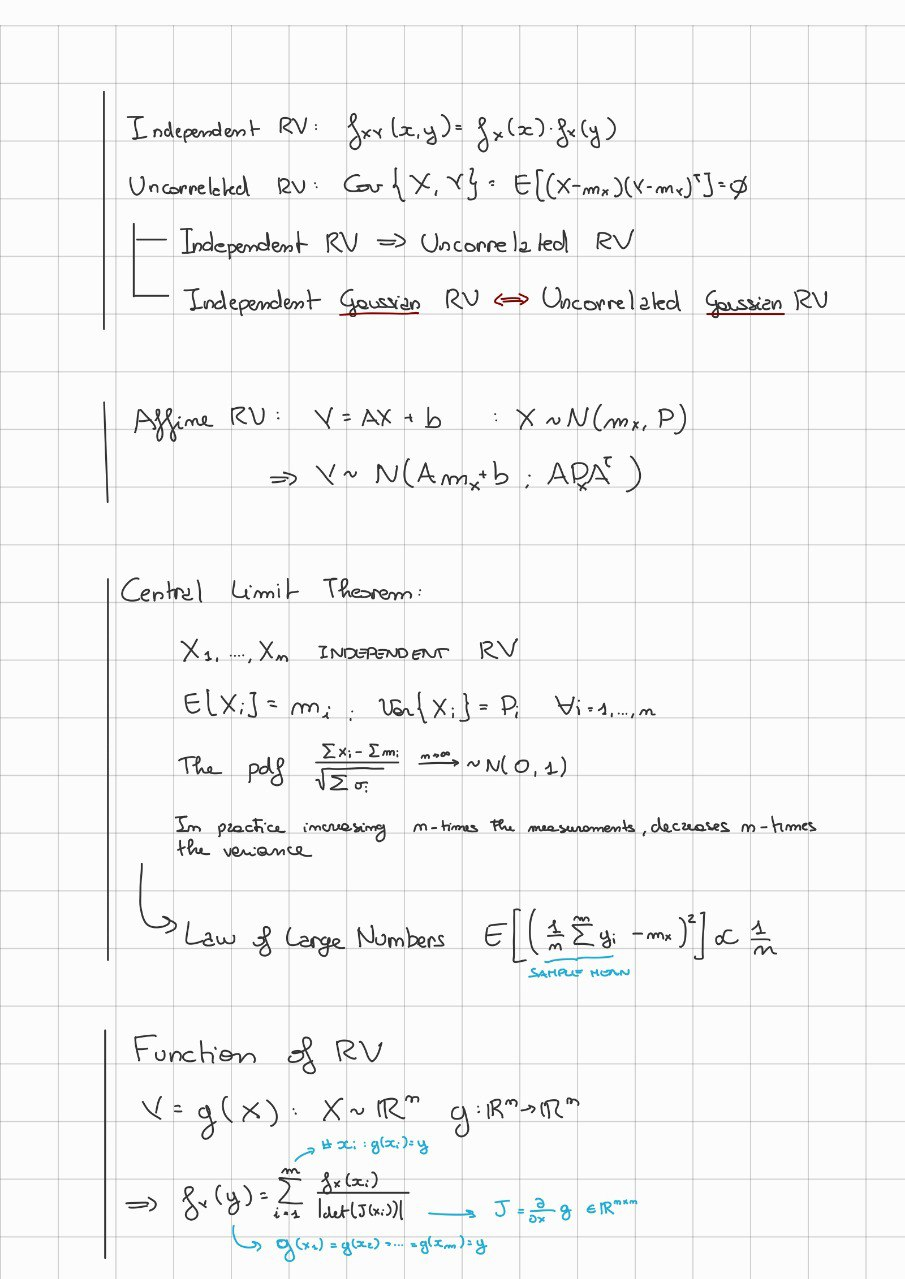 Independent RV: f_XY(x,y) = f_X(x)·f_Y(y)
Uncorrelated RV: Cov{X,Y} = E[(X-m_X)(Y-m_Y)^T] = ∅
Independent RV ⇒ Uncorrelated RV
Independent Gaussian RV ⇔ Uncorrelated Gaussian RV
Affine RV: Y = AX + b : X ~ N(m_x, P)
⇒ Y ~ N(A m_x + b ; A P_x A^T)
Central Limit Theorem:
X_1, ...., X_n INDEPENDENT RV
E[X_i] = m_i ; Var{X_i} = P_i ∀i=1,...,n
The pdf (Σx_i - Σm_i)/√(Σσ_i) —n→∞→ ~ N(0,1)
In practice increasing n-times the measurements, decreases n-times
the variance
Law of Large Numbers E[(1/n Σ^n y_i - m_x)^2] ∝ 1/n
SAMPLE MEAN
Function of RV
Y = g(X) : X ~ ℝ^n g: ℝ^n → ℝ^n
# x_i : g(x_i) = y
⇒ f_Y(y) = Σ_{i=1}^m f_X(x_i)/|det(J(x_i))| → J = ∂/∂x g ∈ ℝ^{n×n}
g(x_1) = g(x_2) = ... = g(x_m) = y